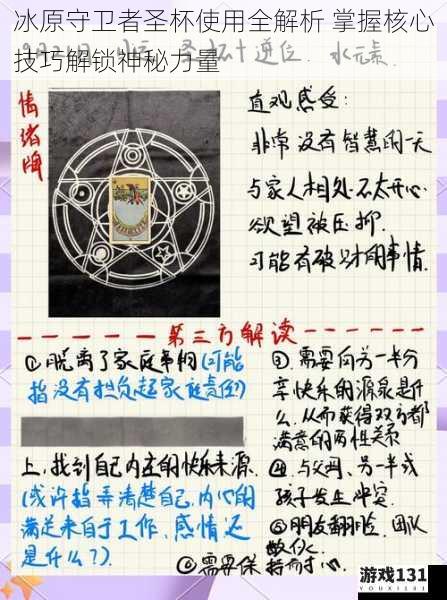 冰原守卫者圣杯使用全解析 掌握核心
技巧解锁神秘力量
圣杯十逆位. 水元素.
情绪牌
直观感受:
非常没有智慧的一天
与家人相处不太开心
欲望被压抑.
可能有破财的事情.
第三方解读
①脱离了家庭事物(可能
指没有担负起家庭责任)
上,找到自己内在的快乐来源.
(或许指弄清楚自己,内心的
满足来自于工作、感情还
是什么?).
③.需要向另一半分
享快乐的源泉是什
么.从而获得双方都
满意的两性关系
④.与父母、另一半或
孩子发生冲突.
⑤朋友翻脸、团队
散伙.
⑥需要保持耐心.
游戏131
YOUXI131